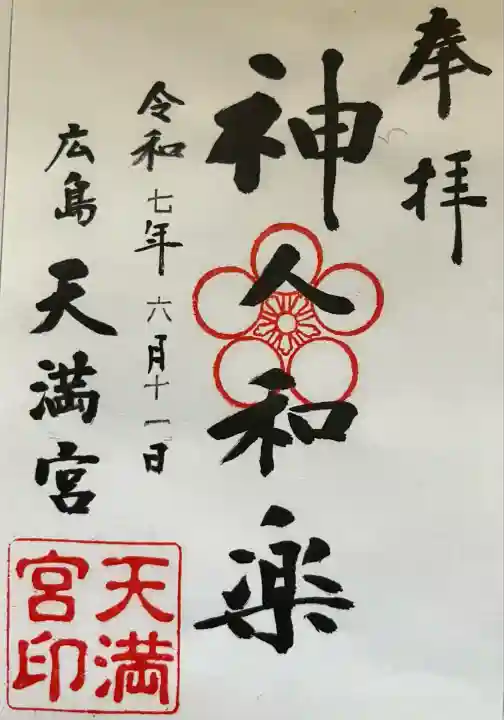 奉拝
神人和楽
令和七年六月十一日
広島天満宮
天満宮印